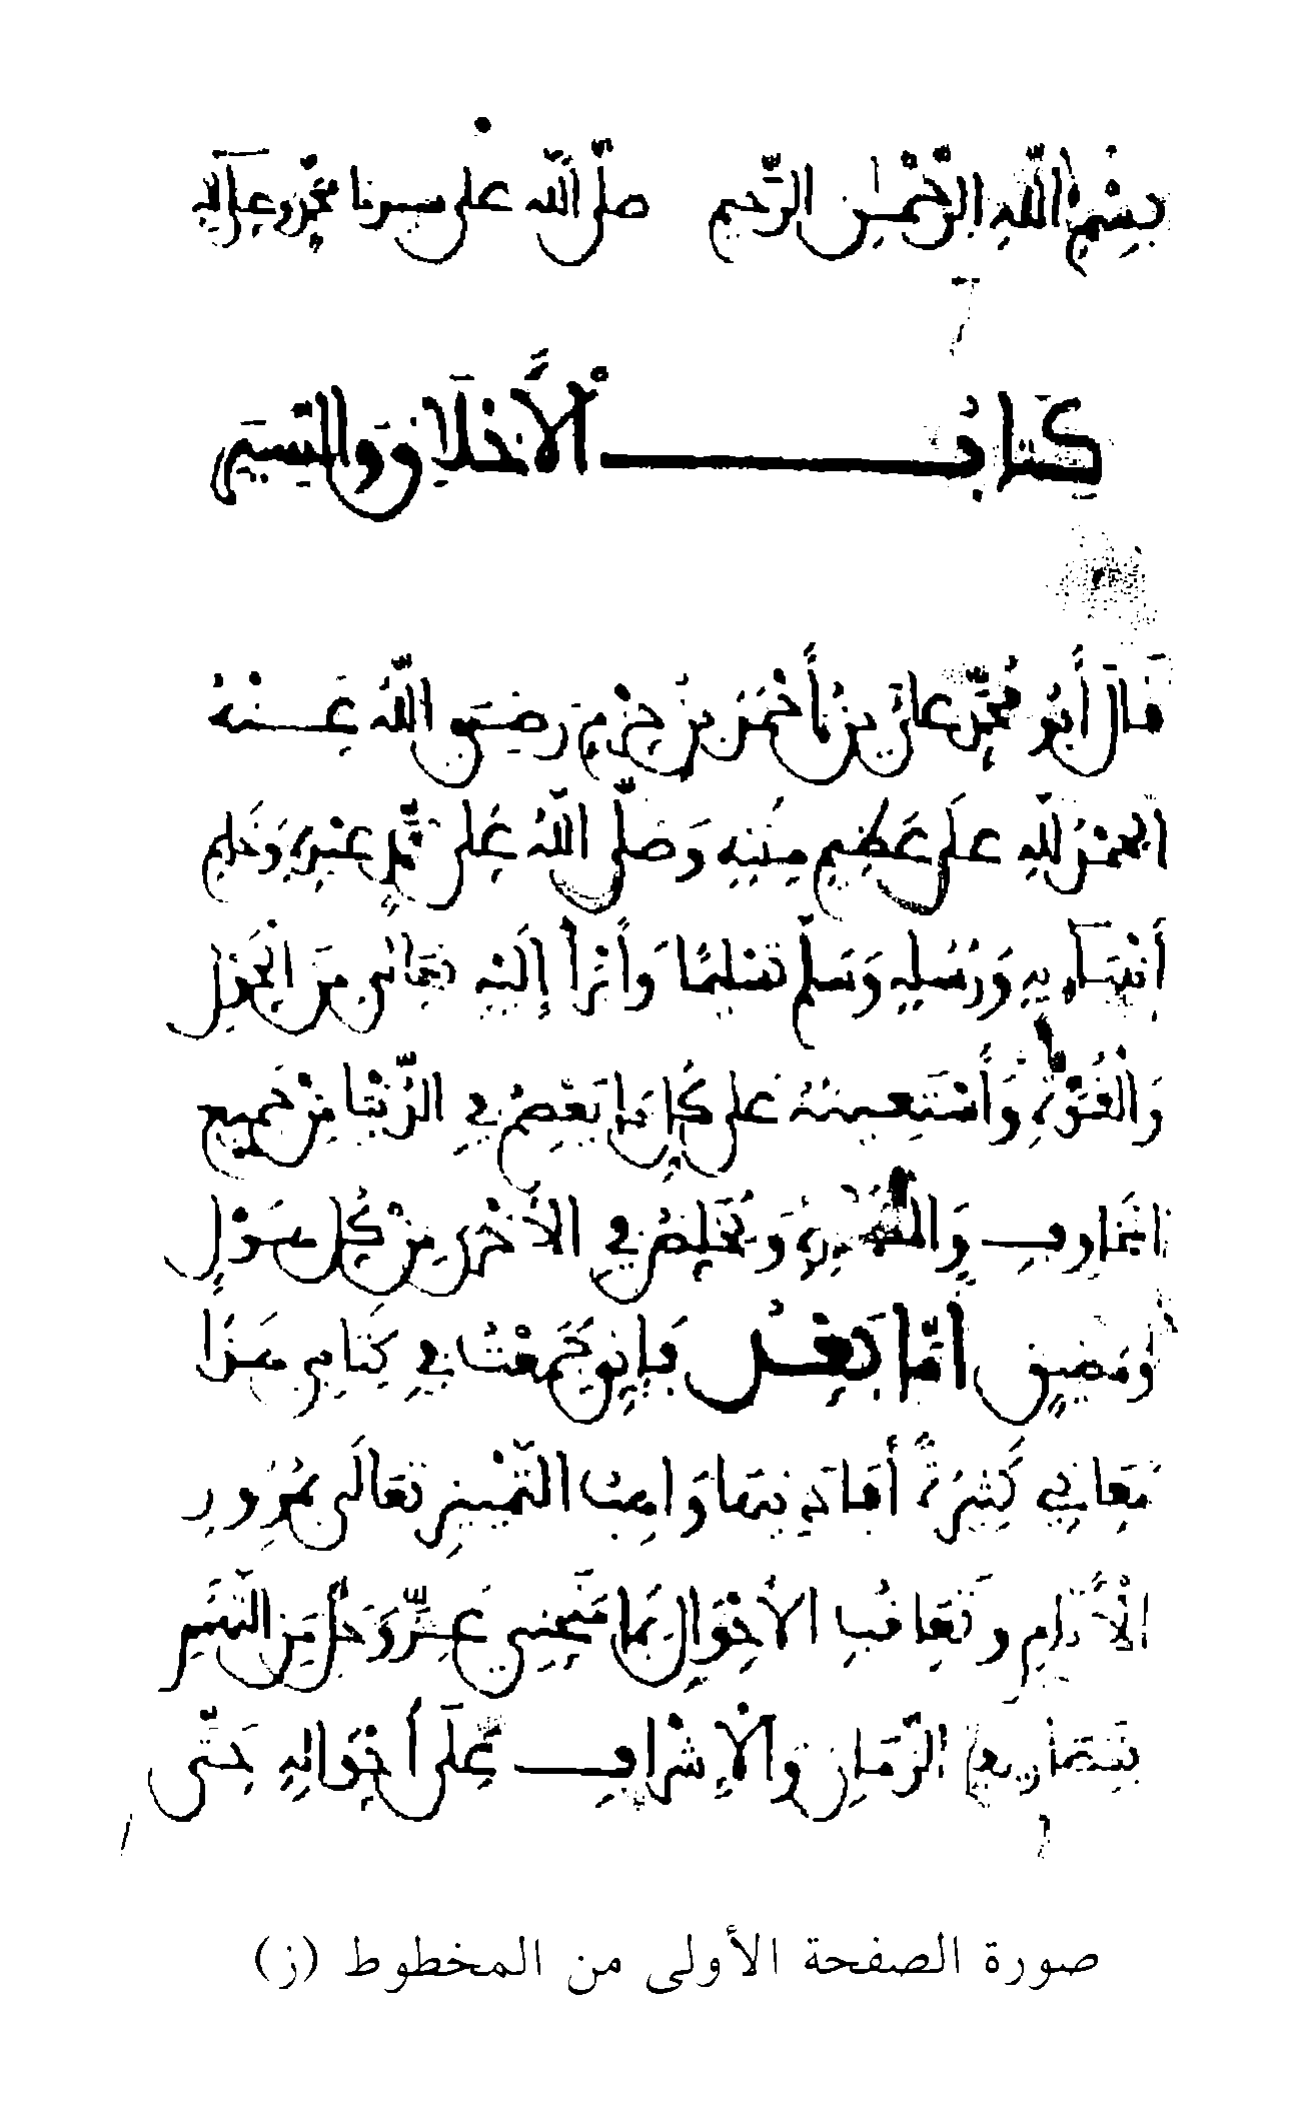 بِسْمِ اللهِ الرَّحْمٰنِ الرَّحِيمِ صلّى اللّه على سيدنا محمّد وعلى آله
كِتَابُ الْأَخْلَاقِ وَالسِّيَرِ
قَالَ أَبُو مُحَمَّدٍ عَلِيُّ بْنُ أَحْمَدَ بْنِ حَزْمٍ رَضِيَ اللَّهُ عَنْهُ
الحَمْدُ لِلَّهِ عَلَى عَظِيمِ مِنَنِهِ وَصَلَّى اللَّهُ عَلَى مُحَمَّدٍ عَبْدِهِ وَخَاتِمِ
أَنْبِيَآئِهِ وَرُسُلِهِ وَسَلَّمَ تَسْلِيمًا وَأَبْرَأُ إِلَيْهِ تَعَالَى مِنَ الْحَوْلِ
وَالْقُوَّةِ وَأَسْتَعِينُهُ عَلَى كُلِّ مَا يَعْصِمُ فِي الدُّنْيَا مِنْ جَمِيعِ
المَخَاوِفِ وَالمَكَارِهِ وَيُخَلِّصُ فِي الْأُخْرَى مِنْ كُلِّ هَوْلٍ
وَمَضِيقٍ أَمَّا بَعْدُ فَإِنِّي جَمَعْتُ فِي كِتَابِي هَذَا
مَعَانِيَ كَثِيرَةً أَفَادَنِيهَا وَاهِبُ التَّمْيِيزِ تَعَالَى بِمُرُورِ
الْأَيَّامِ وَتَعَاقُبِ الْأَحْوَالِ بِمَا مَنَحَنِي عَزَّ وَجَلَّ مِنَ التَّهَمُّمِ
بِتَصَارِيفِ الزَّمَانِ وَالْإِشْرَافِ عَلَى أَحْوَالِهِ حَتَّى
صورة الصفحة الأولى من المخطوط (ز)